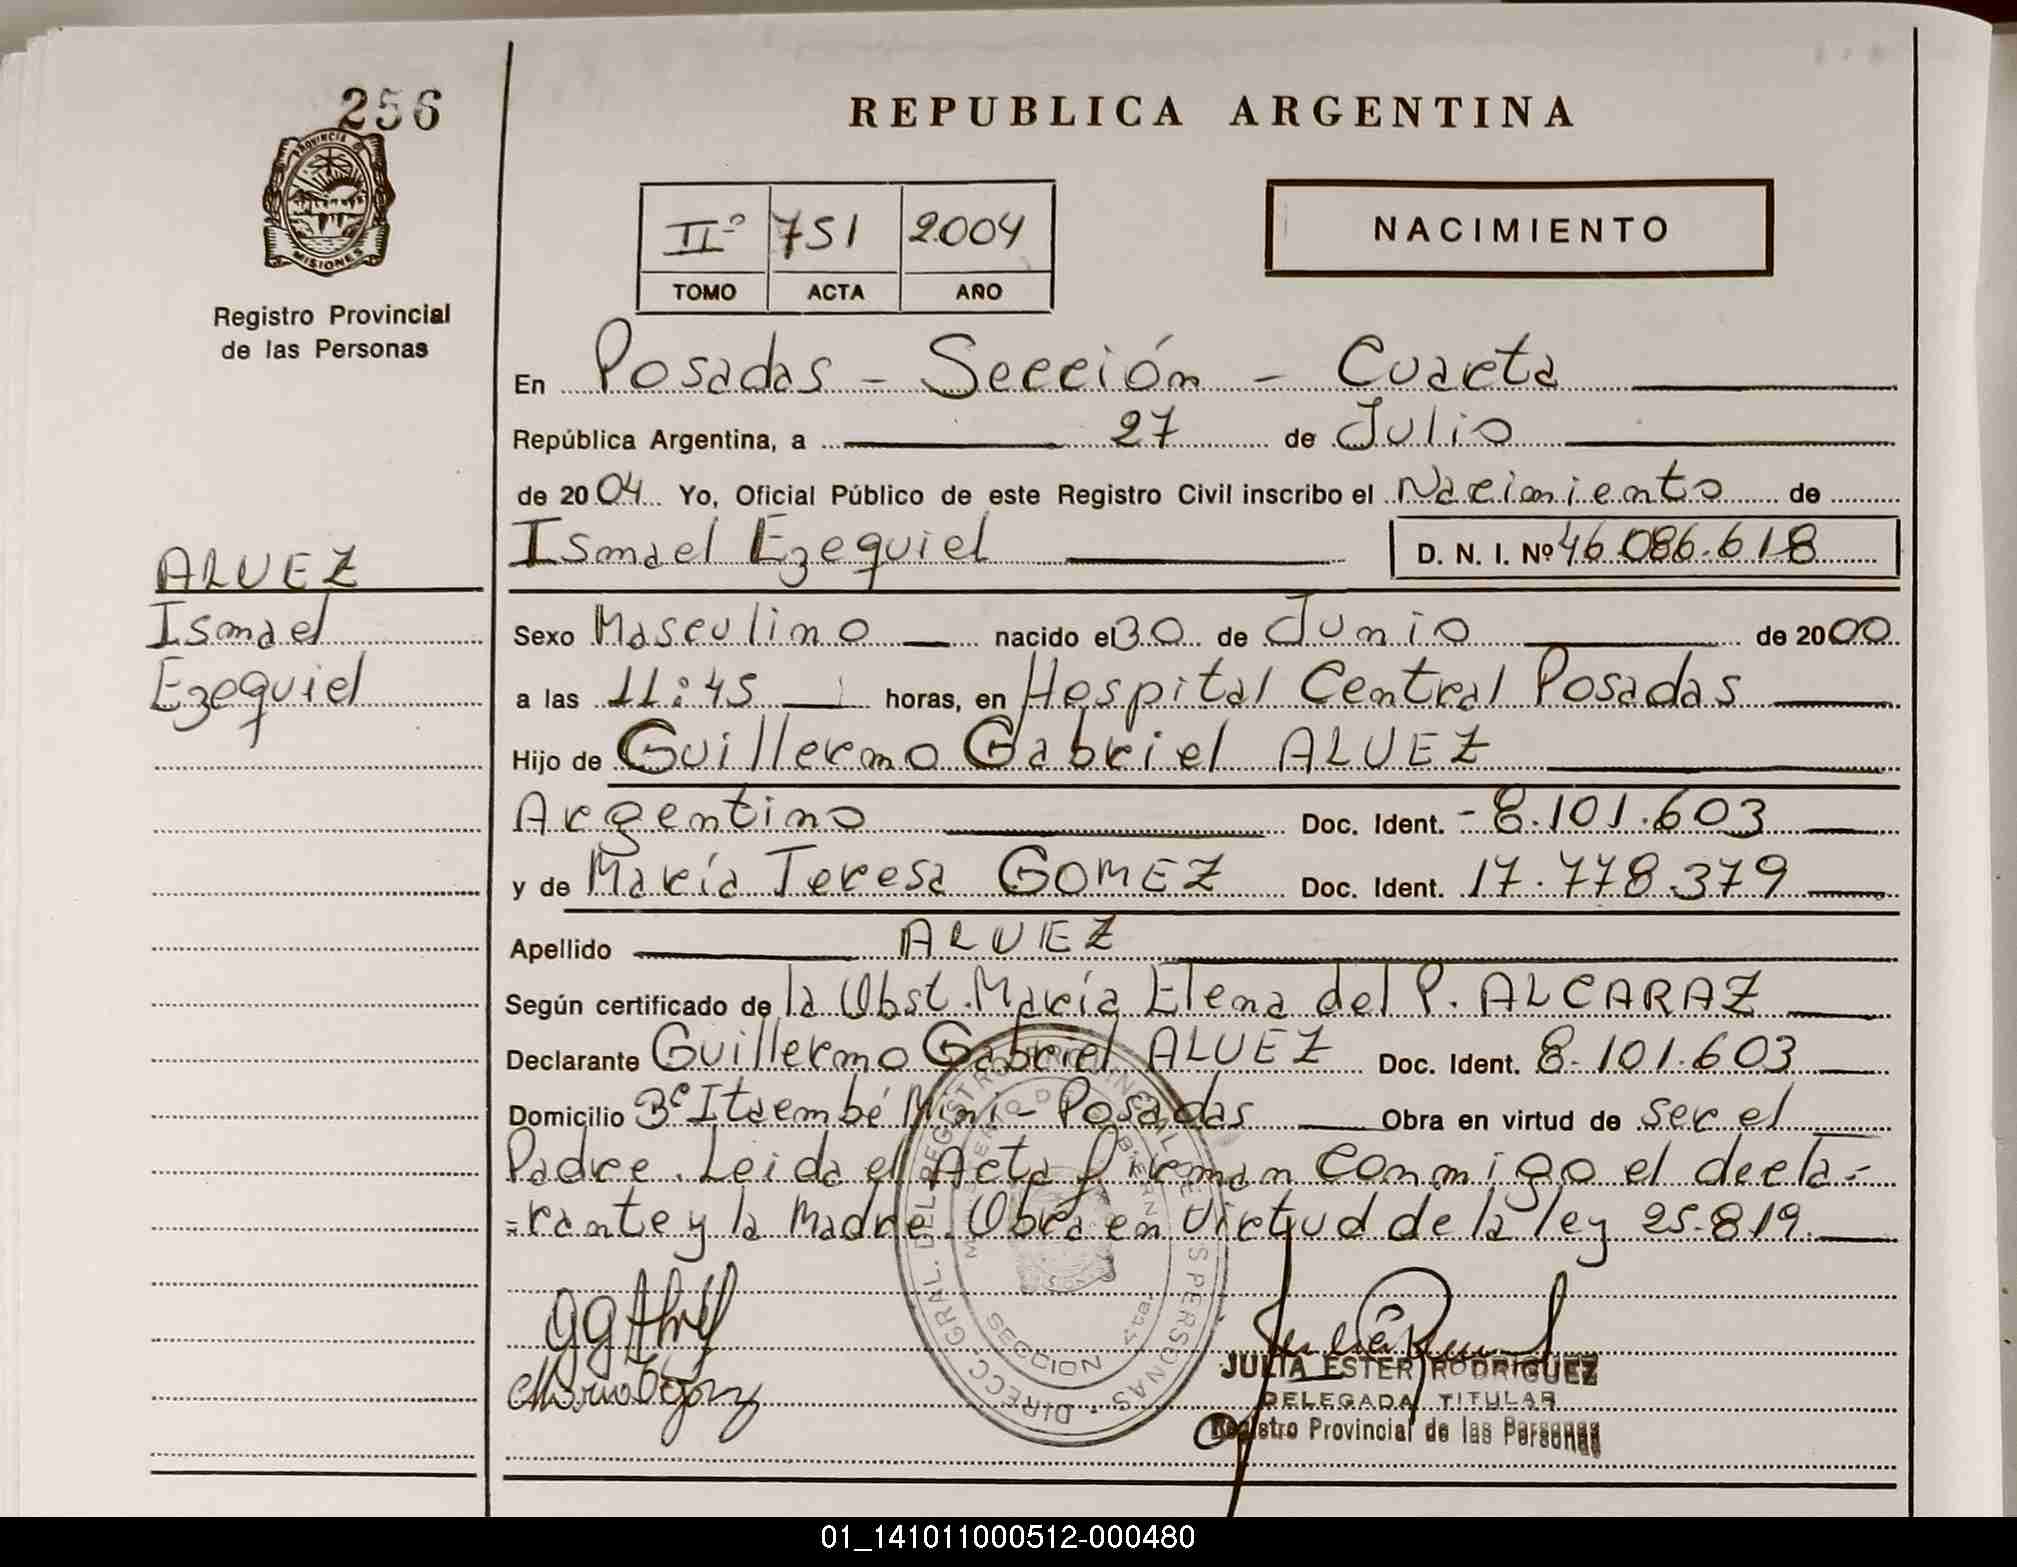 256
PROVINCIA DE
MISIONES
Registro Provincial
de las Personas
REPUBLICA ARGENTINA
IIº 751 2004
TOMO ACTA AÑO
NACIMIENTO
En Posadas - Sección - Cuarta
República Argentina, a 27 de Julio
de 2004 Yo, Oficial Público de este Registro Civil inscribo el Nacimiento de
Ismael Ezequiel D. N. I. Nº 46.086.618
ALVEZ
Ismael
Ezequiel
Sexo Masculino nacido el 30 de Junio de 2000
a las 11:45 horas, en Hospital Central Posadas
Hijo de Guillermo Gabriel ALVEZ
Argentino Doc. Ident. - 8.101.603
y de María Teresa GOMEZ Doc. Ident. 17.778.379
Apellido ALVEZ
Según certificado de la Obst. María Elena del P. ALCARAZ
Declarante Guillermo Gabriel ALVEZ Doc. Ident. 8.101.603
Domicilio Bº Itaembé Mini - Posadas Obra en virtud de ser el
Padre. Leida el Acta firman conmigo el decla=
=rante y la Madre. Obra en Virtud de la ley 25.819.
DIRECC. GRAL. DEL REGISTRO PROVINCIAL DE LAS PERSONAS
SECCION 4ta.
JULIA ESTER RODRIGUEZ
DELEGADA TITULAR
Registro Provincial de las Personas
01_141011000512-000480